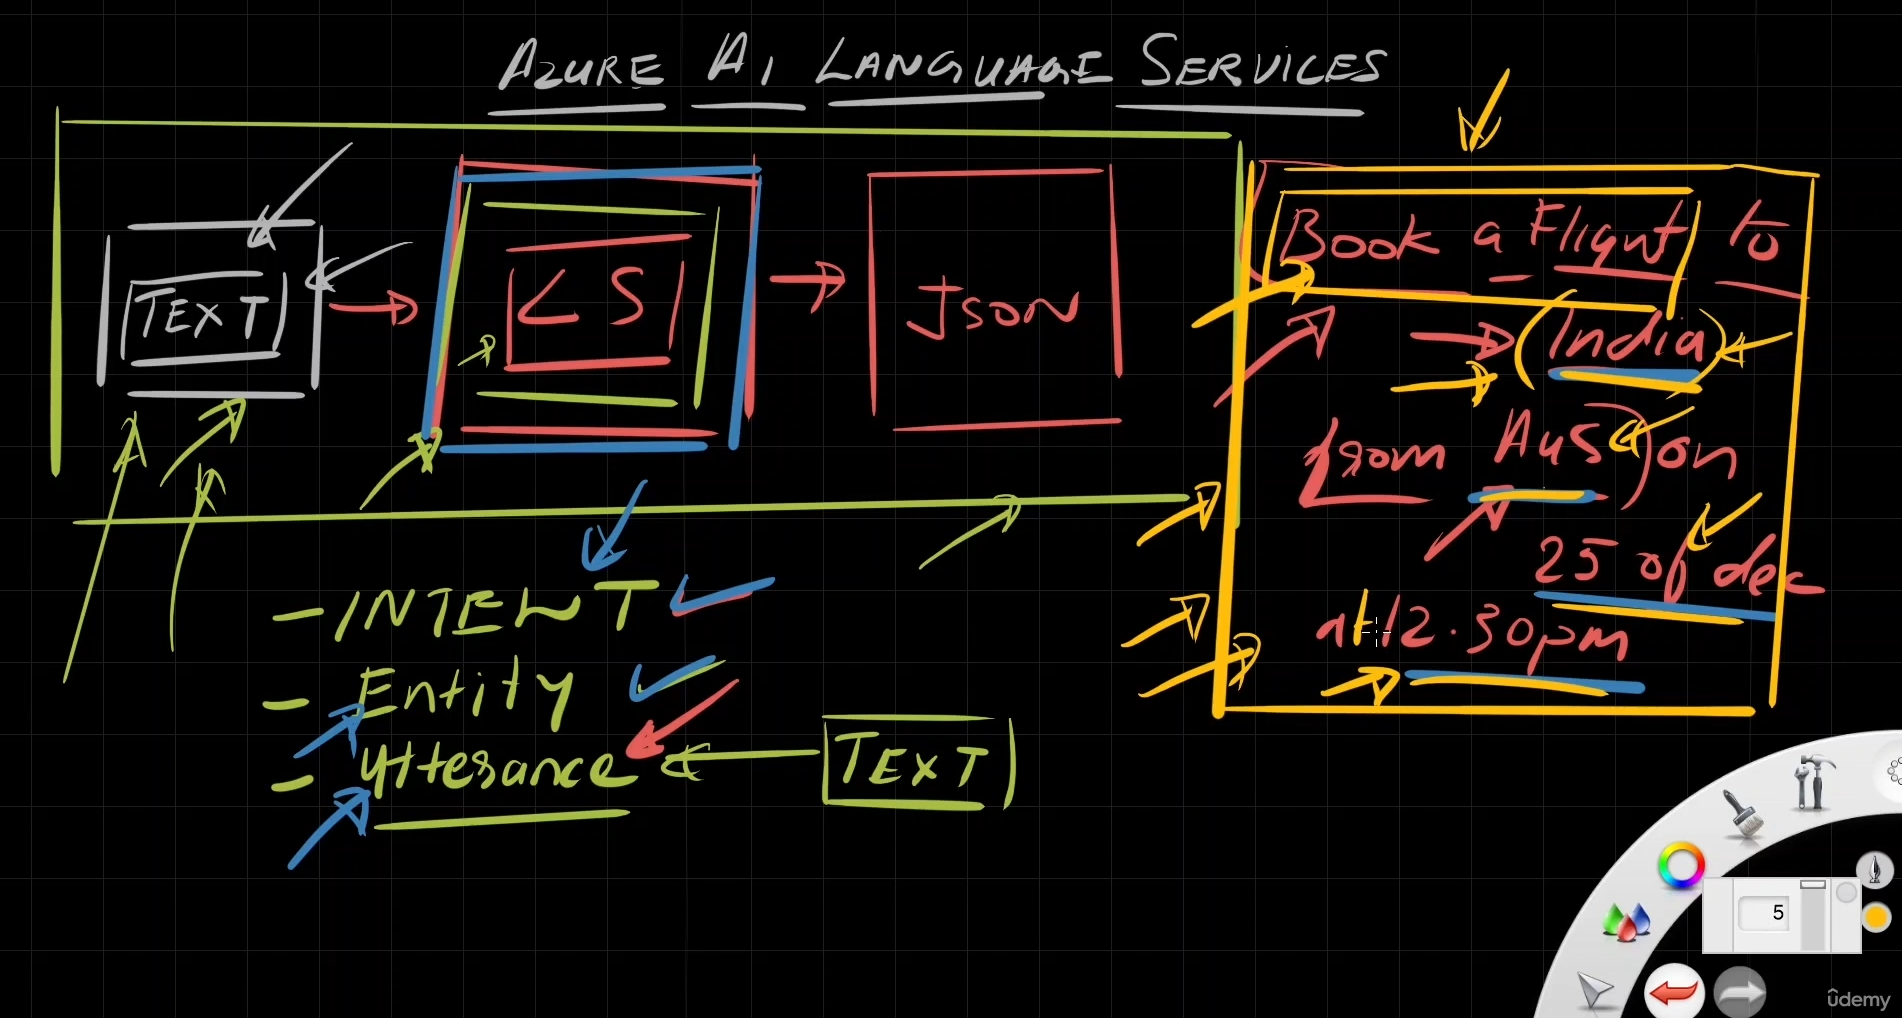 AZURE AI LANGUAGE SERVICES
TEXT
LS
Json
Book a Flight to
India
from Aus on
25 of dec
at 12.30pm
- INTENT
- Entity
- Utterance
TEXT
5
ûdemy